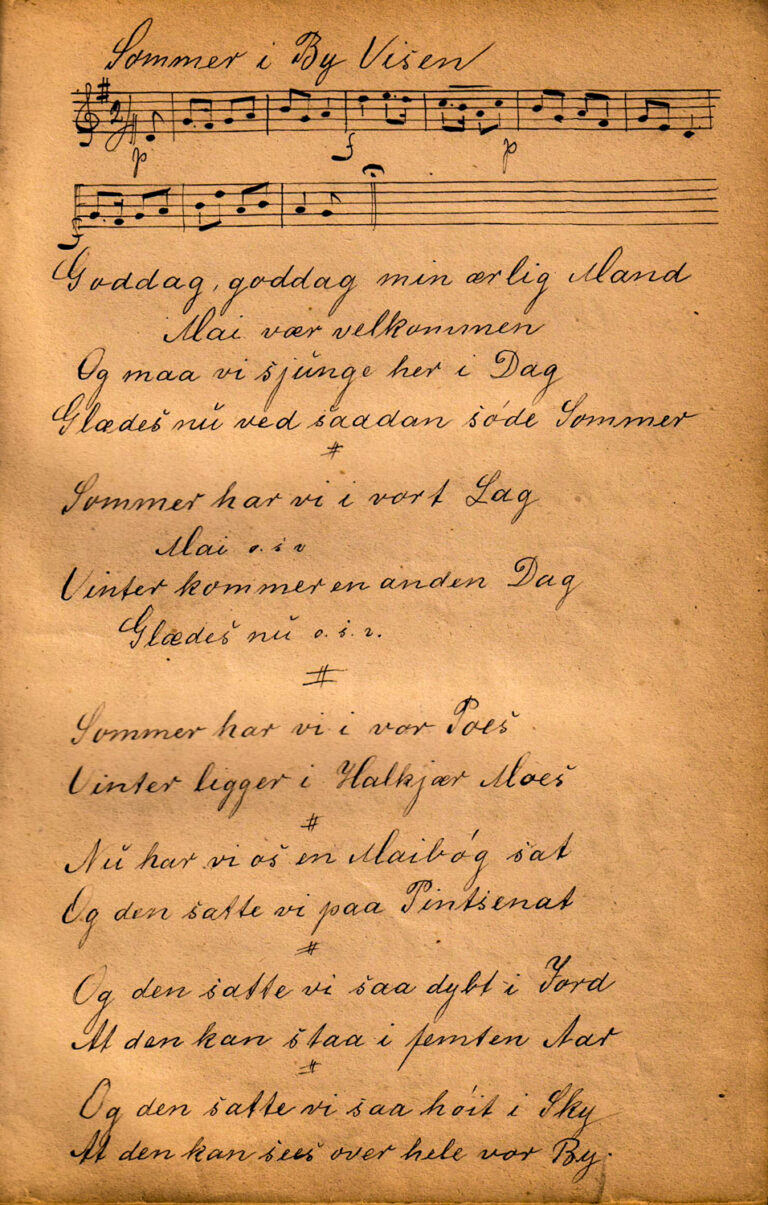 Sommer i By Visen
p f p
f
Goddag, goddag min ærlig Mand
Mai vær velkommen
Og maa vi sjunge her i Dag
Glædes nu ved saadan søde Sommer
#
Sommer har vi i vort Lag
Mai o. s v
Vinter kommer en anden Dag
Glædes nu o. s. v.
#
Sommer har vi i vor Poes
Vinter ligger i Halkjær Moes
#
Nu har vi os en Maibøg sat
Og den satte vi paa Pintsenat
#
Og den satte vi saa dybt i Jord
At den kan staa i femten Aar
#
Og den satte vi saa høit i Sky
At den kan sees over hele vor By.